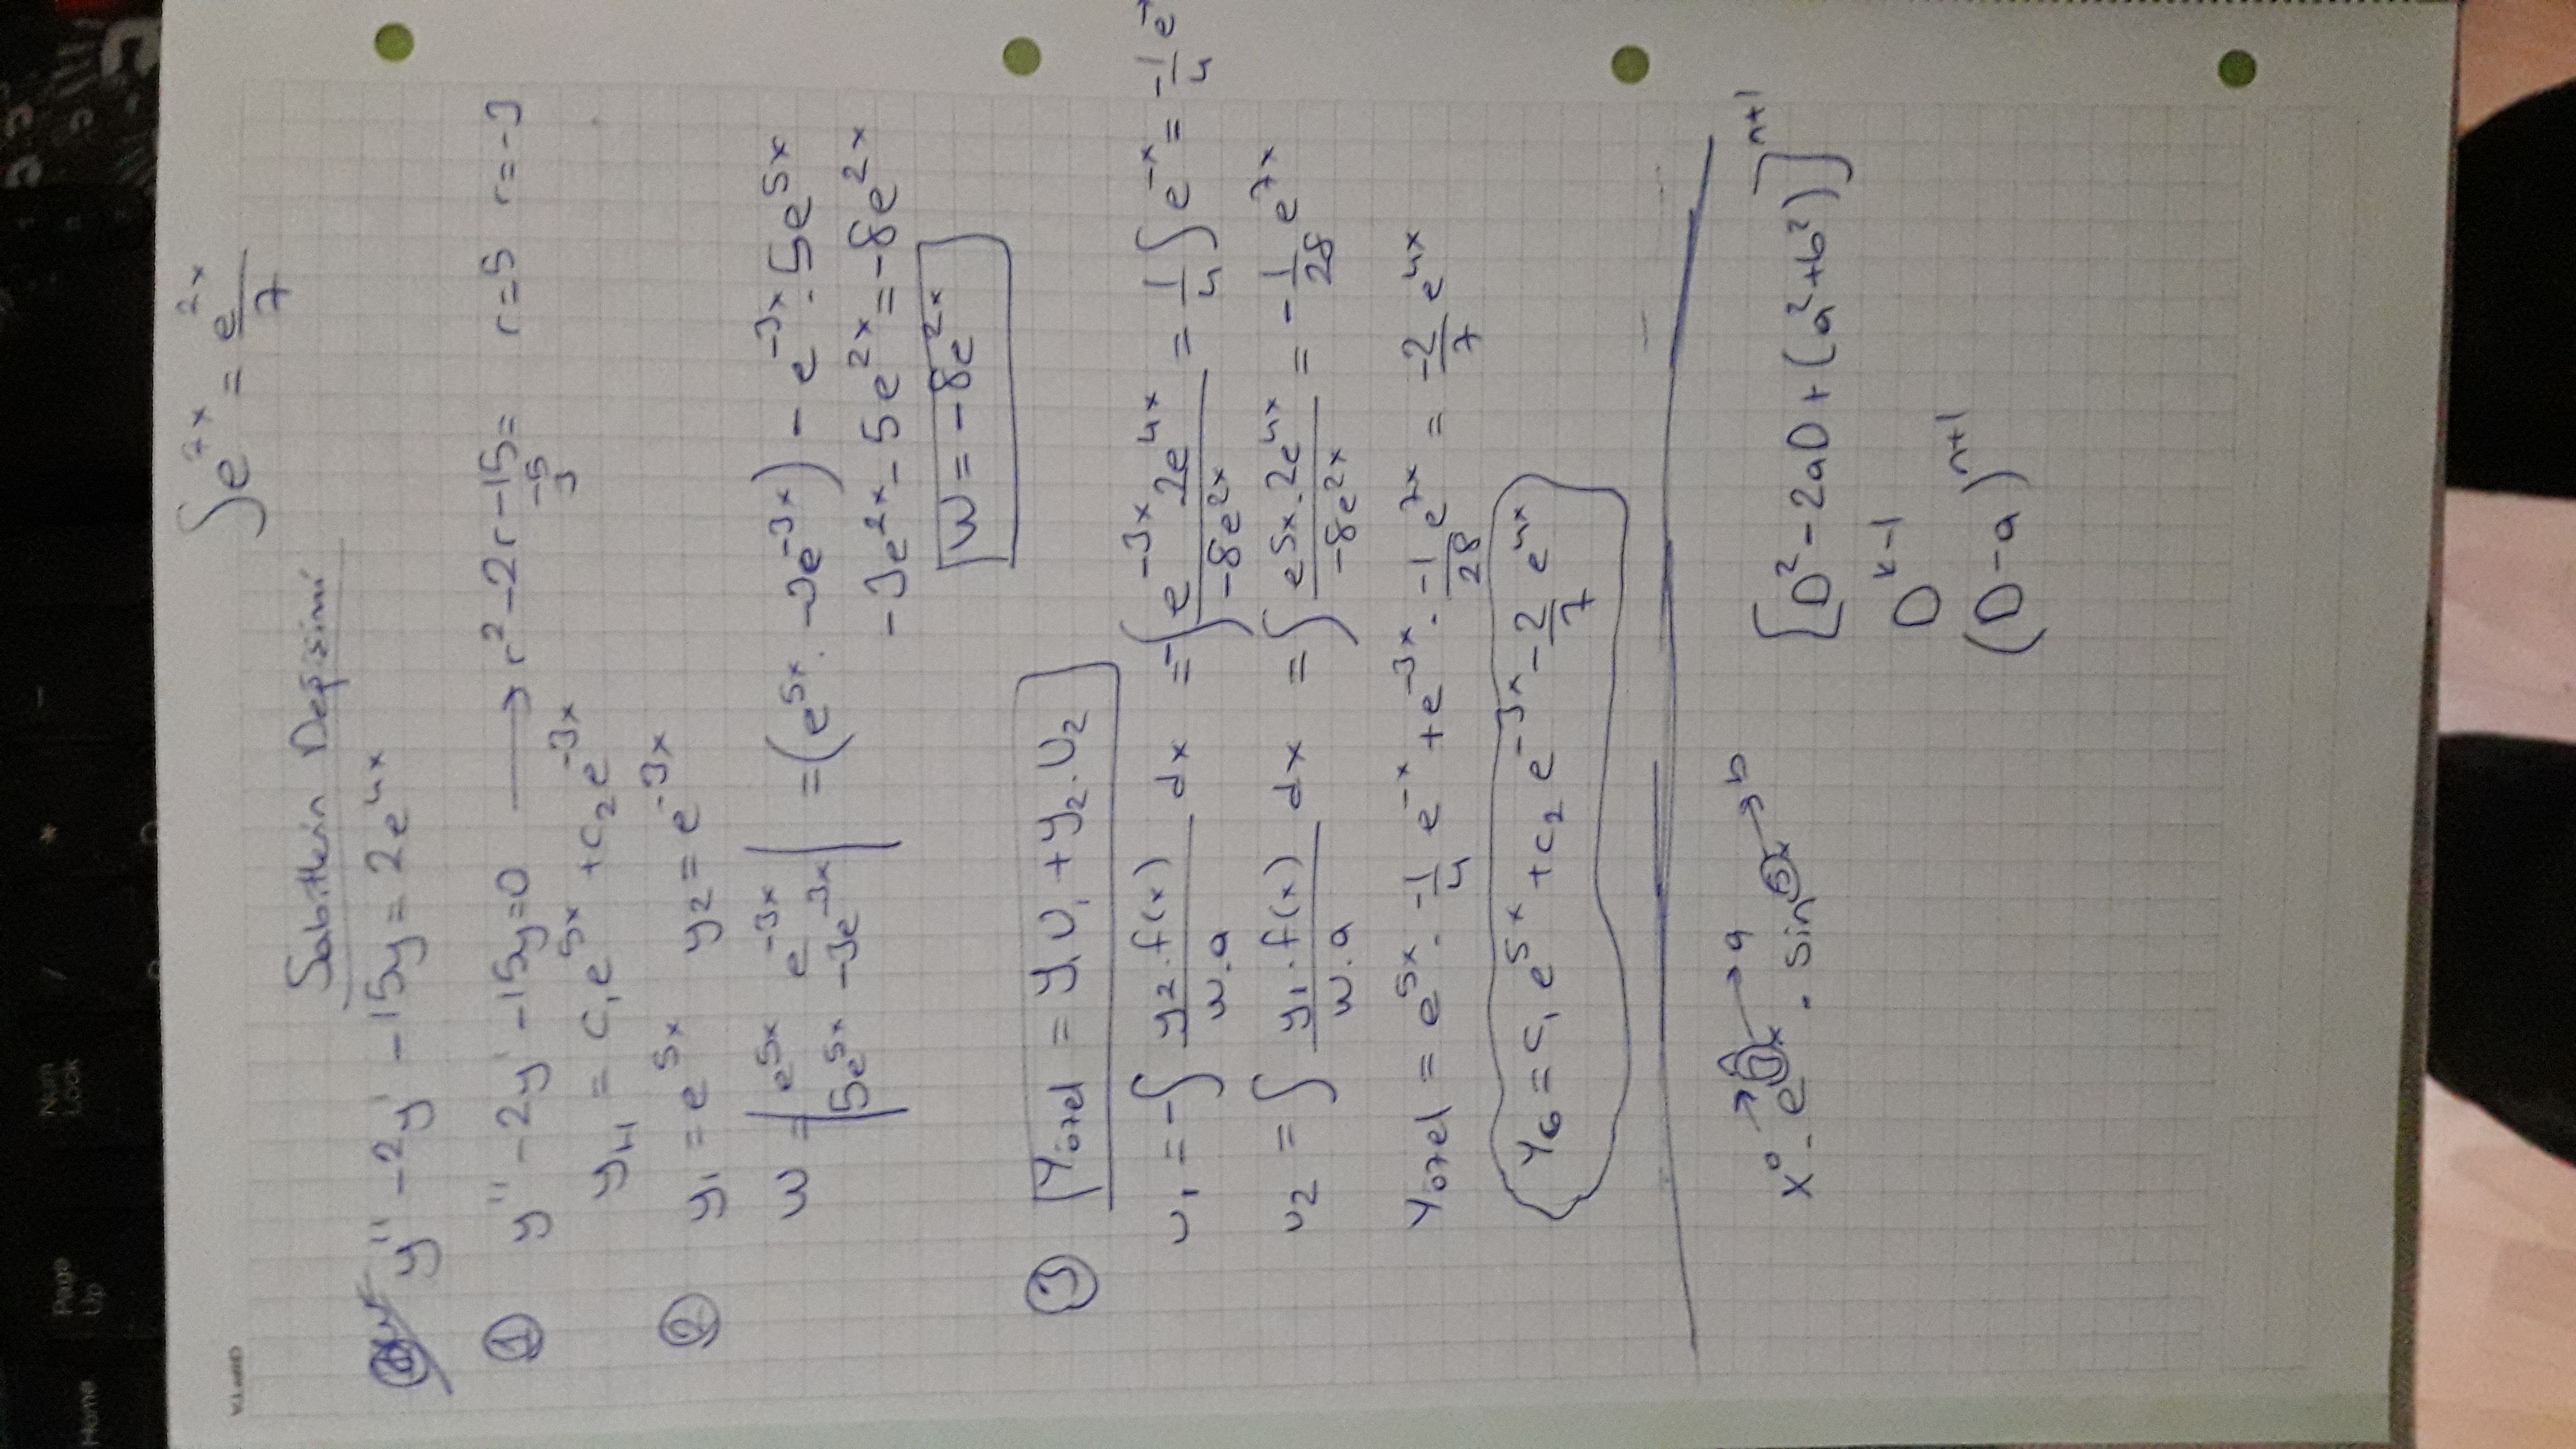 Home
Page Up
Num Lock
/
*
-
∫e^7x = e^7x/7
Sabitlerin Değişimi
y'' - 2y' - 15y = 2e^4x
① y'' - 2y' - 15y = 0 ⟶ r² - 2r - 15 = r = 5 r = -3
-5
3
y_H = c₁e^5x + c₂e^-3x
② y₁ = e^5x y₂ = e^-3x
W = |e^5x e^-3x; 5e^5x -3e^-3x| = (e^5x . -3e^-3x) - e^-3x . 5e^5x
-3e^2x - 5e^2x = -8e^2x
W = -8e^2x
③ Yözel = y₁U₁ + y₂.U₂
u₁ = -∫ y₂.f(x)/w.a dx = -∫ e^-3x 2e^4x/-8e^2x = 1/4 ∫ e^-x = -1/4 e^-
u₂ = ∫ y₁.f(x)/w.a dx = ∫ e5x.2e^4x/-8e^2x = -1/28 e^7x
Yözel = e^5x . -1/4 e^-x + e^-3x . -1/28 e^7x = -2/7 e^4x
Y_G = c₁e^5x + c₂e^-3x - 2/7 e^4x
→ a → b
x^0 . e^3x . sin5x [D² - 2aD + (a² + b²)]^n+1
D^k-1
(D - a)^n+1